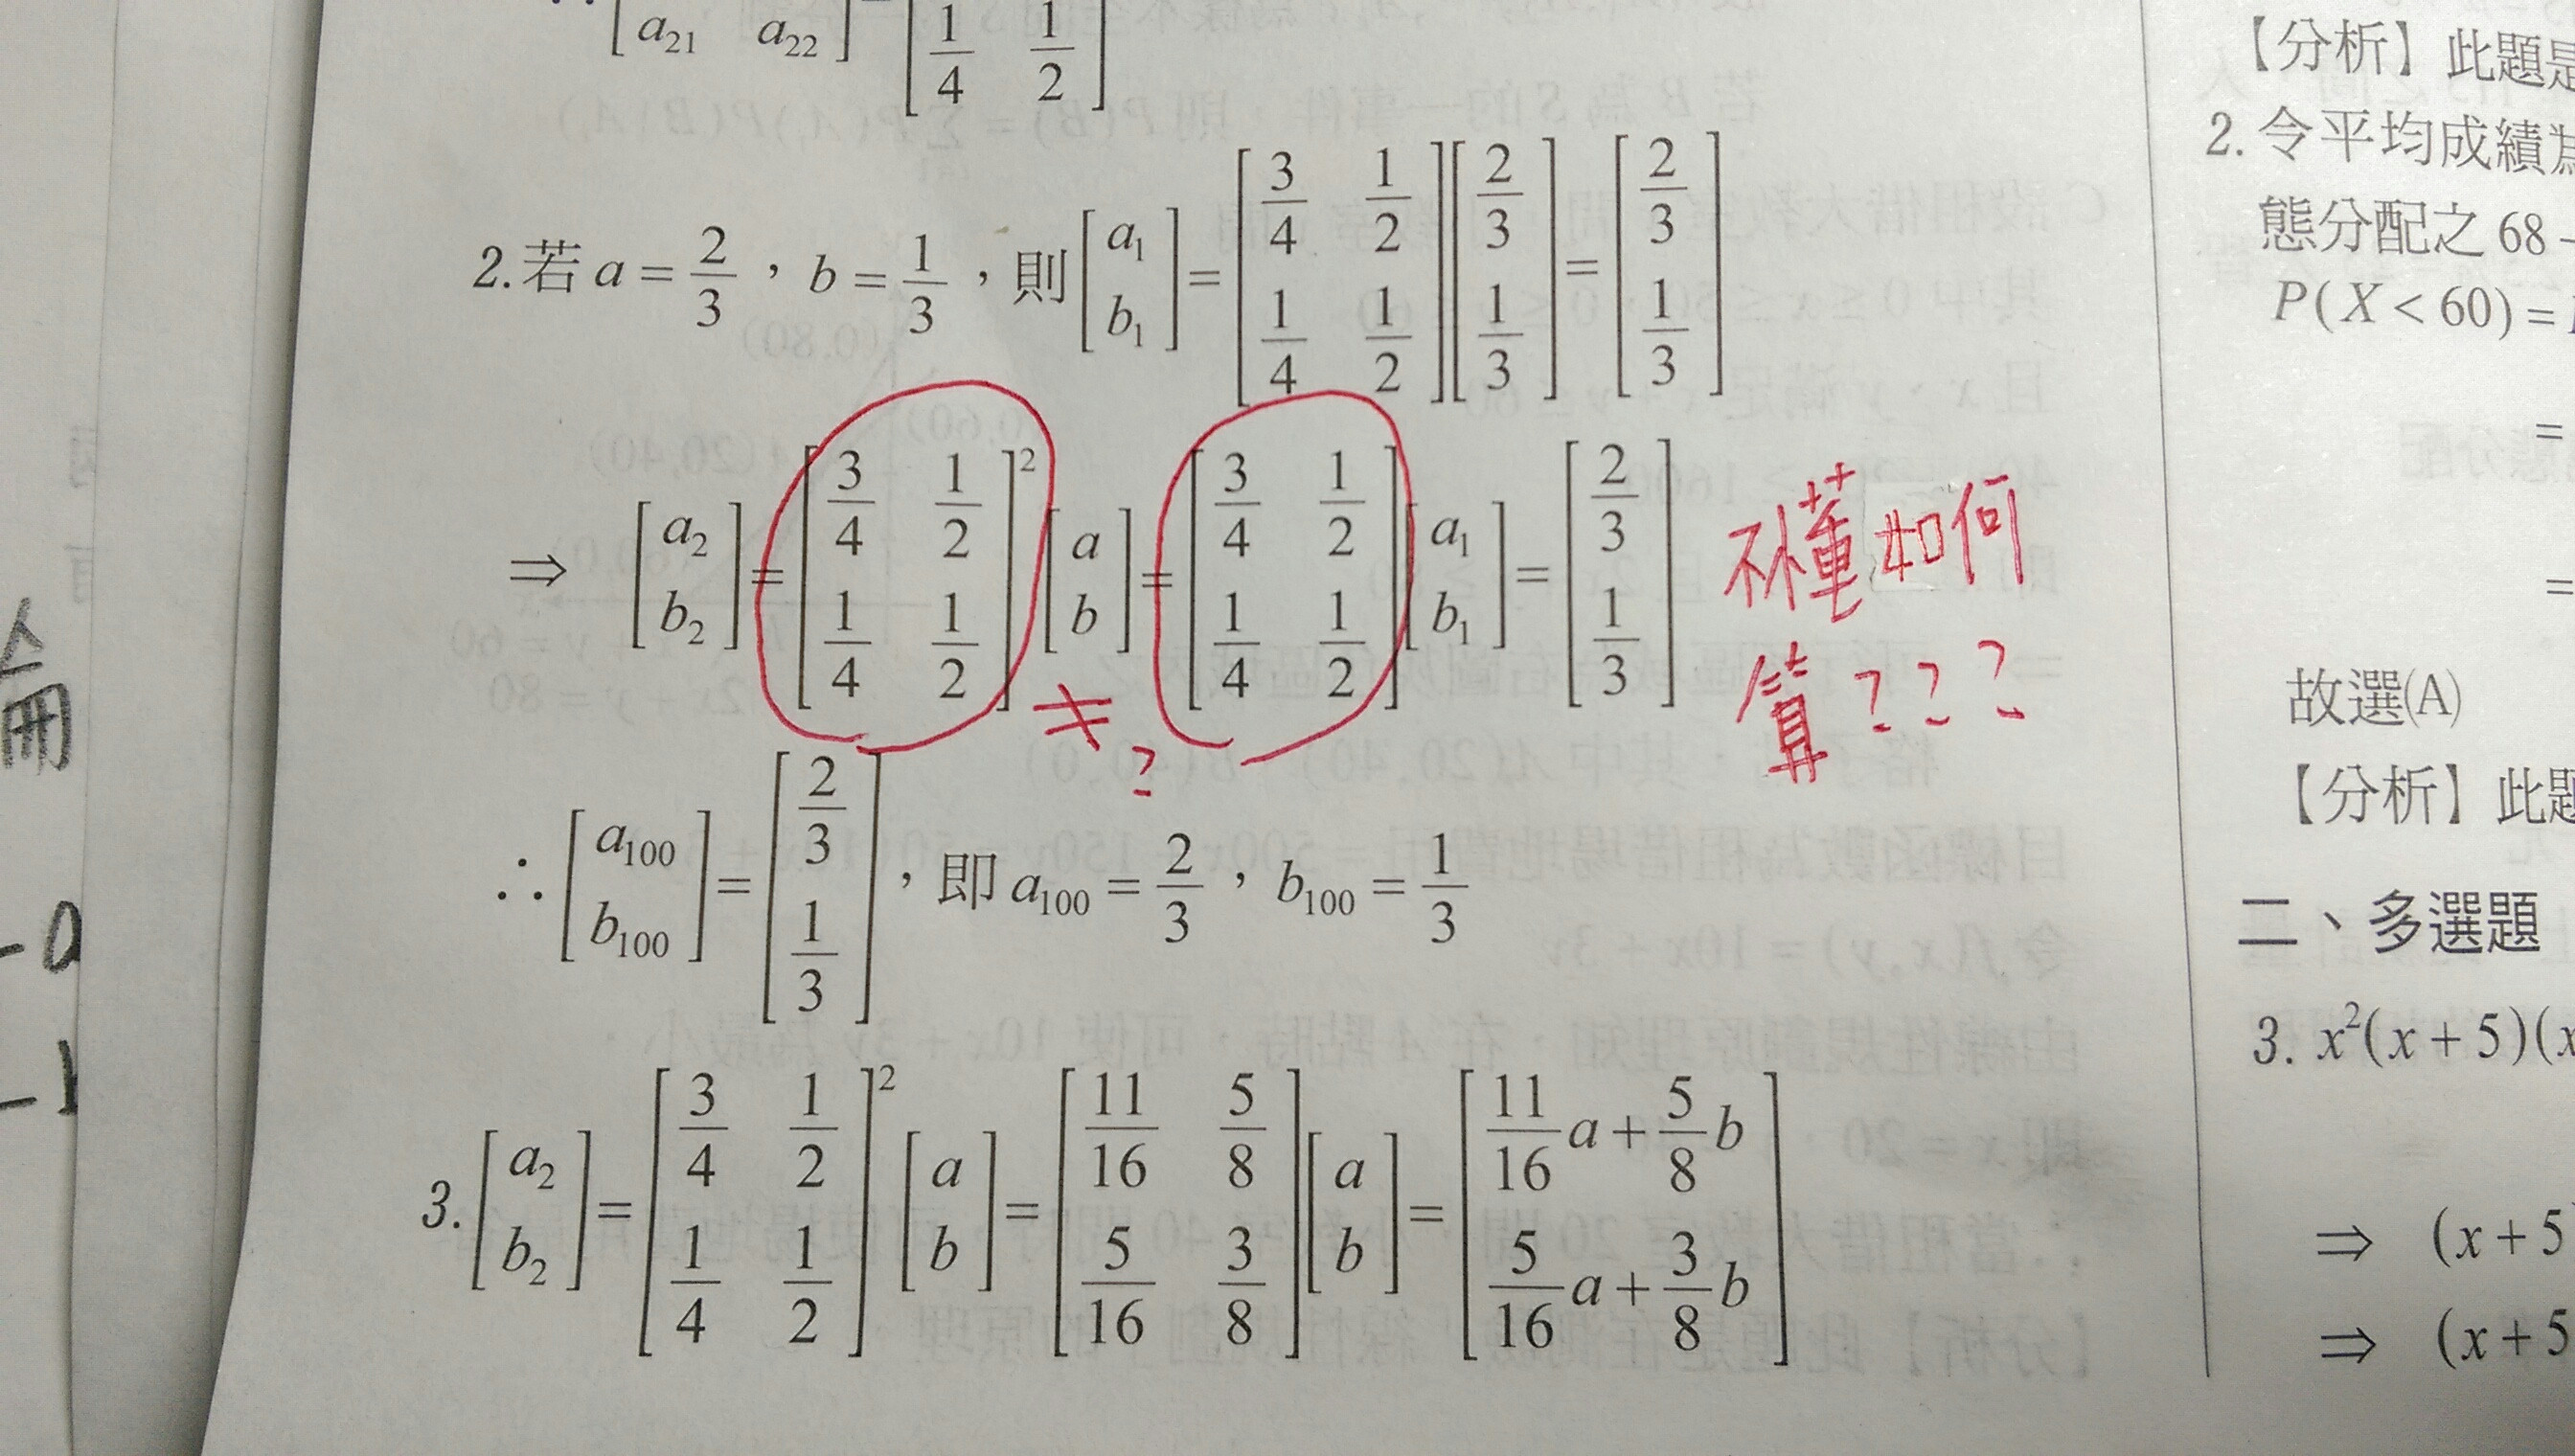 ∴[a₂₁ a₂₂]=[1/4 1/2]
2.若 a = 2/3,b = 1/3,則[a₁ b₁]=[3/4 1/2 1/4 1/2][2/3 1/3]=[2/3 1/3]
⇒ [a₂ b₂]=[3/4 1/2 1/4 1/2]²[a b]=[3/4 1/2 1/4 1/2][a₁ b₁]=[2/3 1/3]
不懂如何
算???
≠?
∴[a₁₀₀ b₁₀₀]=[2/3 1/3],即 a₁₀₀ = 2/3,b₁₀₀ = 1/3
3.[a₂ b₂]=[3/4 1/2 1/4 1/2]²[a b]=[11/16 5/8 5/16 3/8][a b]=[11/16a+5/8b 5/16a+3/8b]
【分析】此題是
2.令平均成績為
態分配之 68 -
P(X < 60) =
=
=
故選(A)
【分析】此題
二、多選題
3. x²(x + 5)(x
⇒ (x + 5
⇒ (x + 5